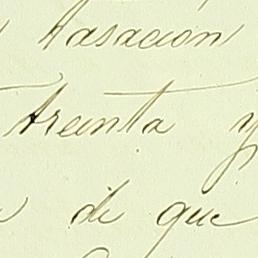 tasación
treinta y
de que